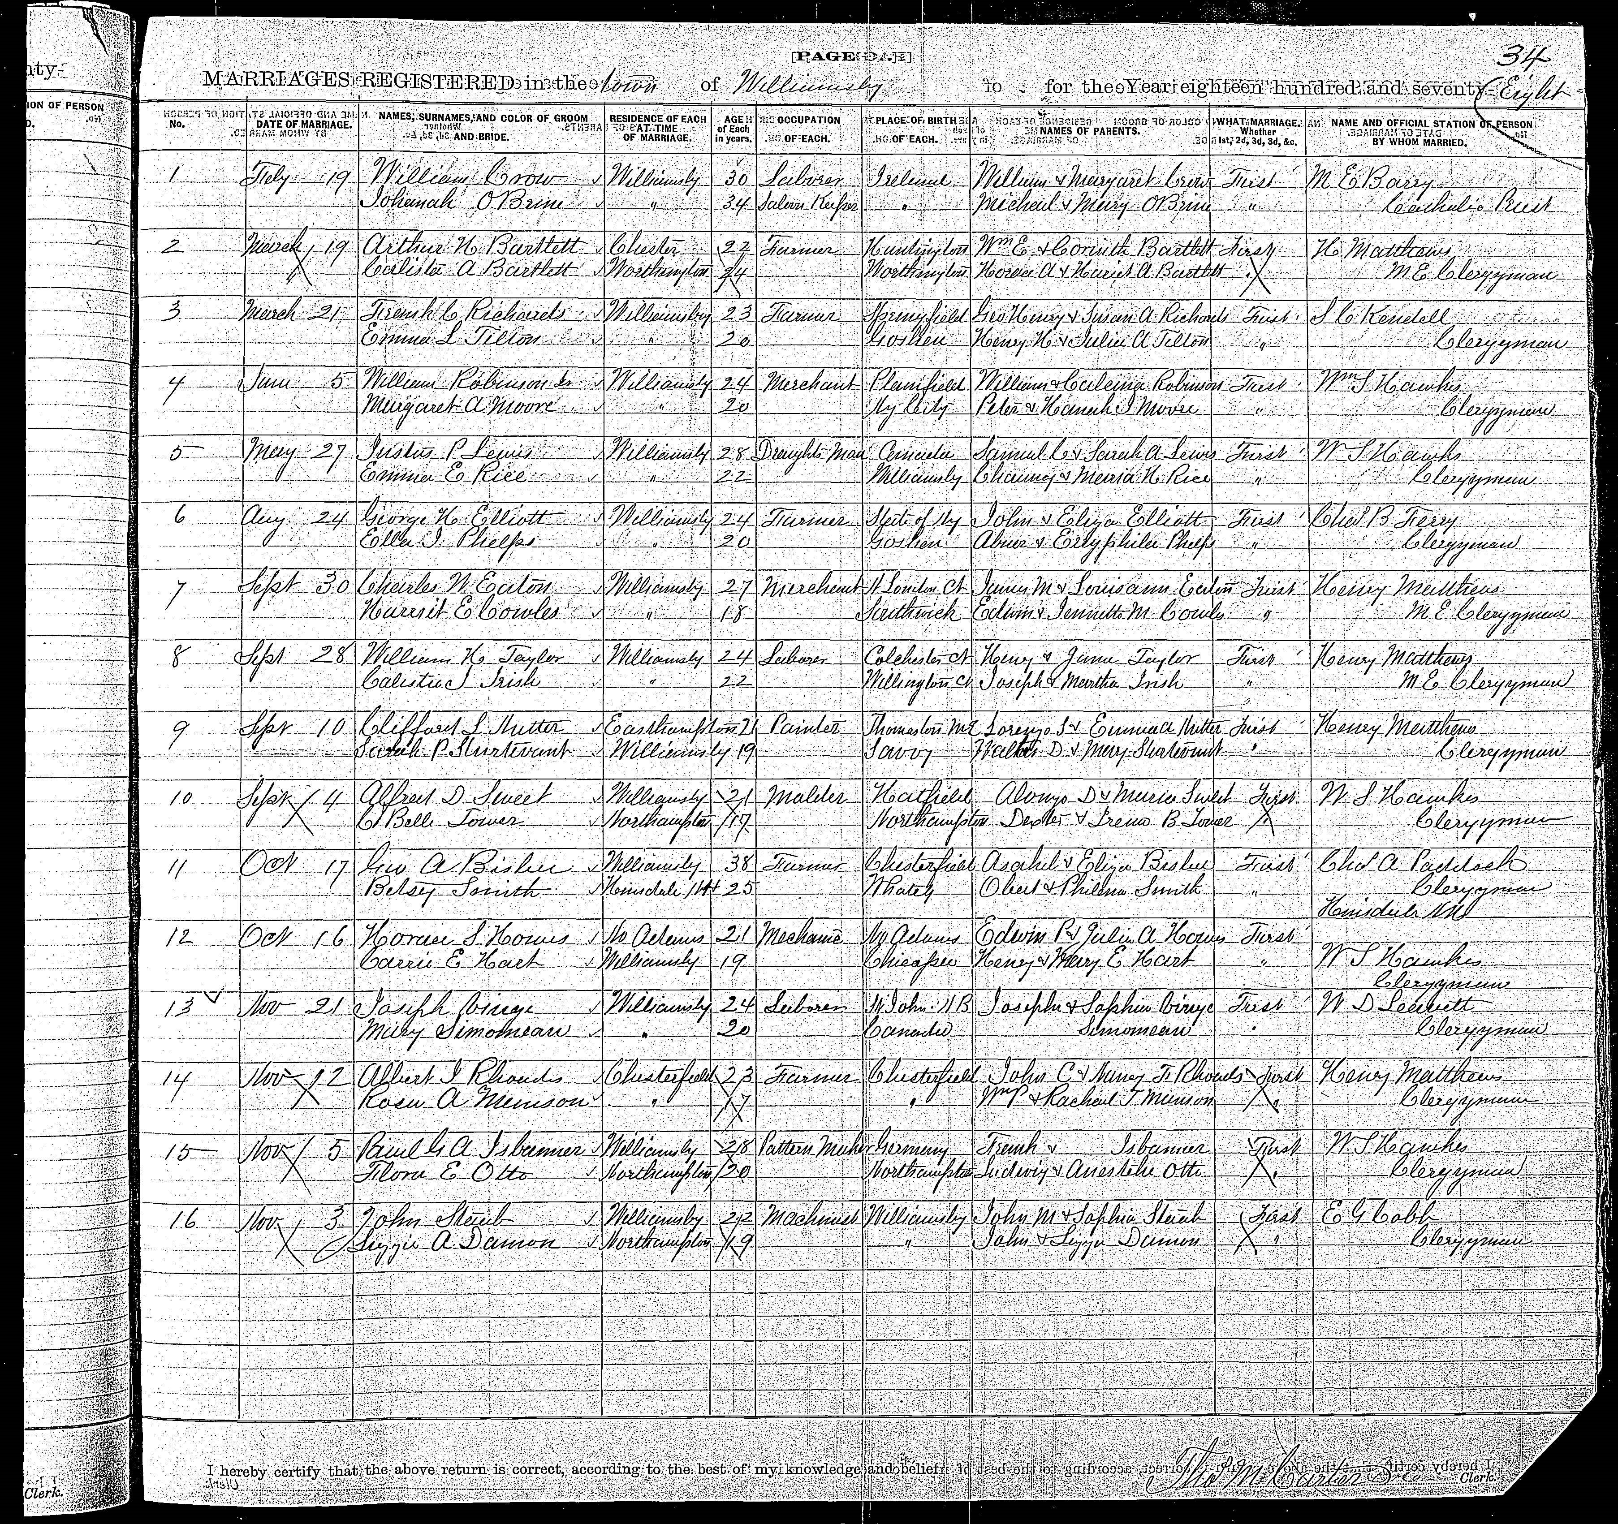 34
PAGE
MARRIAGES REGISTERED in the town of Williamsby for the Year eighteen hundred and seventy-Eight
No. DATE OF MARRIAGE. NAMES, SURNAMES, AND COLOR OF GROOM AND BRIDE. RESIDENCE OF EACH AT TIME OF MARRIAGE. AGE of Each in years. OCCUPATION OF EACH. PLACE OF BIRTH OF EACH. NAMES OF PARENTS. WHAT MARRIAGE. Whether 1st, 2d, 3d, &c. NAME AND OFFICIAL STATION OF PERSON BY WHOM MARRIED.
1 Feby 19 William Crow Williamsby 30 Laborer Ireland William & Margaret Crow First M E Barry
Johanah O Brine " 34 Saloon Keeper " Michael & Mary O Brine " Catholic Priest
2 March 19 Arthur H Bartlett Chester 27 Farmer Huntington Wm E & Corinth Bartlett First H Matthews
Calista A Bartlett Worthington 24 Worthington Horace A & Hariet A Bartlett " M E Clergyman
3 March 21 Frank C Richards Williamsby 23 Farmer Springfield Geo Henry & Susan A Richards First S C Kendell
Emma L Tilton " 20 Goshen Henry H & Julia A Tilton " Clergyman
4 June 5 William Robinson Jr Williamsby 24 Merchant Plainfield William & Robinson First Wm S Hawks
Margaret A Moore " 20 Ny City Peter & Hanah J Moore " Clergyman
5 May 27 Justus P Lewis Williamsby 28 Draughts Man Samuel C & Sarah A Lewis First W S Hawks
Emma E Rice " 22 Williamsby Chauncy & Maria H Rice " Clergyman
6 Aug 24 George H Elliott Williamsby 24 Farmer State of Ny John & Eliza Elliott First Chas B Ferry
Ella J Phelps " 20 Goshen Abner & Phelps " Clergyman
7 Sept 30 Charles W Eaton Williamsby 27 Merchant N London Ct James M & Louisann Eaton First Henry Matthews
Harriet E Cowles " 18 Southwick Edwin & Jennette M Cowls " M E Clergyman
8 Sept 28 William H Taylor Williamsby 24 Laborer Colchester Ct Henry & Jane Taylor First Henry Matthews
Calistie J Irish " 22 Willington Ct Joseph & Martha Irish " M E Clergyman
9 Sept 10 Clifford S Nutter Easthampton 21 Painter Thomaston Me Lorenzo S & Emma Nutter First Henry Matthews
Sarah P Sturtevant Williamsby 19 Savoy D & Mary Sturtevant " Clergyman
10 Sept 4 Alfred D Sweet Williamsby 21 Molder Hatfield Alonzo D & Maria Sweet First W S Hawks
C Belle Tower Northampton 17 Northampton Dexter & Irene B Tower " Clergyman
11 Oct 17 Geo A Bisbee Williamsby 38 Farmer Chesterfield Asahel & Eliza Bisbee First Chas A Paddock
Betsy Smith Hinsdale NH 25 Whately Obert & Philena Smith " Clergyman
Hinsdale NH
12 Oct 16 Horace S Howes No Adams 21 Mechanic No Adams Edwin P & Julia A Howes First
Carrie E Hart Williamsby 19 Chicopee Henry & Mary E Hart " W S Hawks
Clergyman
13 Nov 21 Joseph Williamsby 24 Laborer St John N B Joseph & Sophia First W D Leavitt
Mary Simoneau " 20 Canada Simoneau " Clergyman
14 Nov 12 Albert J Rhoads Chesterfield 23 Farmer Chesterfield John C & Nancy F Rhoads First Henry Matthews
Rosa A Munson " 17 " Wm P & Rachael T Munson " Clergyman
15 Nov 5 Paul G A Isbanner Williamsby 28 Pattern Maker Germany Frank & Isbanner First W S Hawks
Flora E Otto Northampton 20 Northampton Ludwig & Otto " Clergyman
16 Nov 3 John Staab Williamsby 22 Machinist Williamsby John M & Sophia Staab First E G Cobb
Lizzie A Damon Northampton 19 " John & Lizzie Damon " Clergyman
I hereby certify that the above return is correct, according to the best of my knowledge and belief.
Clerk.
Clerk.